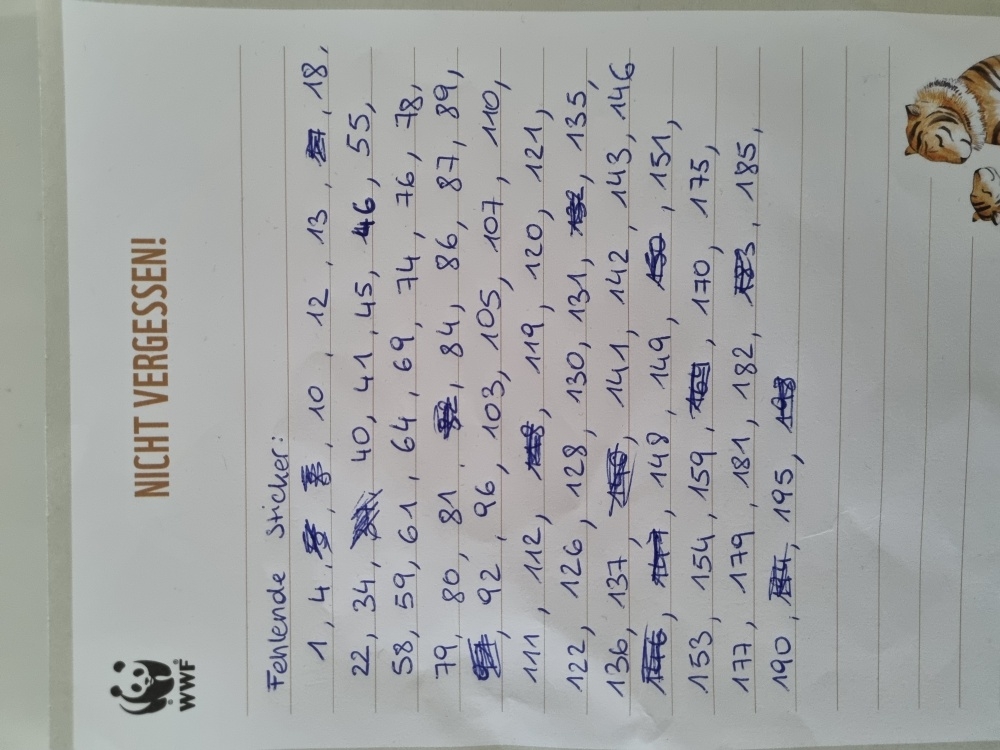 NICHT VERGESSEN!
WWF
Fehlende Sticker:
1, 4, 10, 12, 13, 18,
22, 34, 40, 41, 45, 46, 55,
58, 59, 61, 64, 69, 74, 76, 78,
79, 80, 81, 84, 86, 87, 89,
92, 96, 103, 105, 107, 110,
111, 112, 119, 120, 121,
122, 126, 128, 130, 131, 135,
136, 137, 141, 142, 143, 146
148, 149, 151,
153, 154, 159, 170, 175,
177, 179, 181, 182, 185,
190, 195,